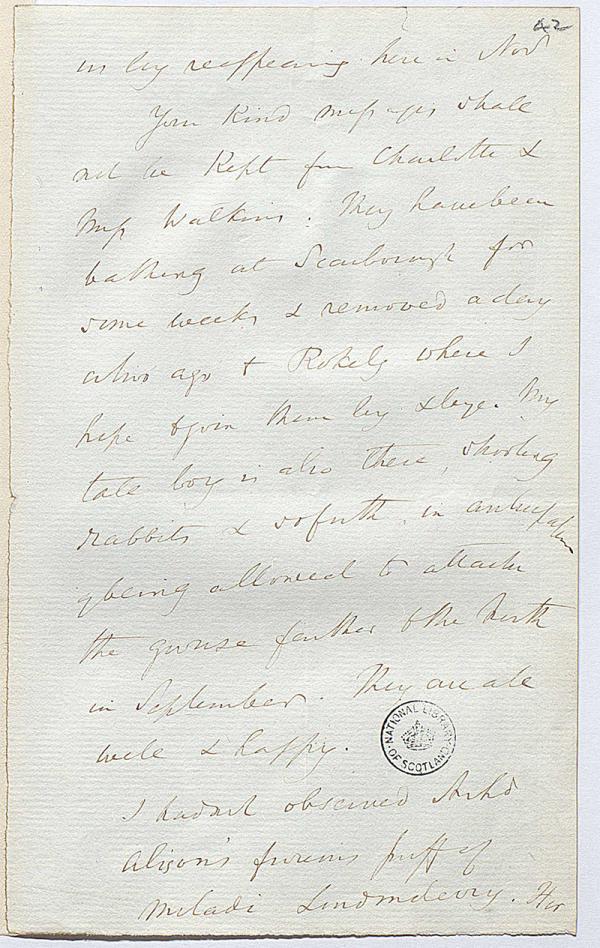 42
us by reappearing here in Novr
Your kind messages shall
not be kept from Charlotte &
Miss Watkins. They have been
bathing at Scarborough for
some weeks & removed a day
or two ago to Rokeby where I
hope to join them by & bye. My
tall boy is also there, shooting
rabbits & so forth, in anticipation
of being allowed to attack
the grouse further to the North
in September. They are all
well & happy.
NATIONAL LIBRARY OF SCOTLAND
I had not observed Archd
Alison's furious puff of
Miladi Londonderry. Her